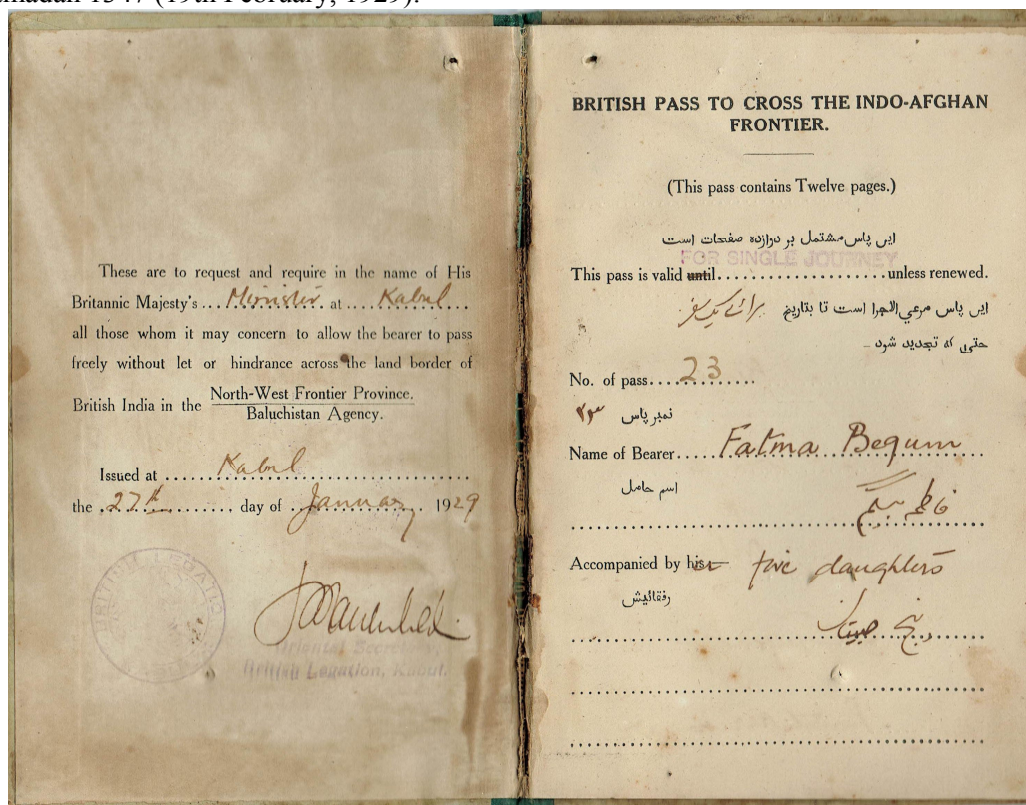 madan 1347 (19th February, 1929).
These are to request and require in the name of His
Britannic Majesty's ... Minister at ... Kabul
all those whom it may concern to allow the bearer to pass
freely without let or hindrance across the land border of
British India in the North-West Frontier Province.
Baluchistan Agency.
Issued at ... Kabul
the 27th day of January 1929
BRITISH LEGATIO
Oriental Secretary,
British Legation, Kabul.
BRITISH PASS TO CROSS THE INDO-AFGHAN
FRONTIER.
(This pass contains Twelve pages.)
این پاس مشتمل بر دوازده صفحات است
FOR SINGLE JOURNEY
This pass is valid until ... unless renewed.
این پاس مرعي الاجرا است تا بتاریخ برائے یک سفر
حتی که تجدید شود
No. of pass.... 23
نمبر پاس ۲۳
Name of Bearer..... Fatma Begum
اسم حامل
فاطمہ بیگم
Accompanied by her five daughters
رفقائیش
پنج